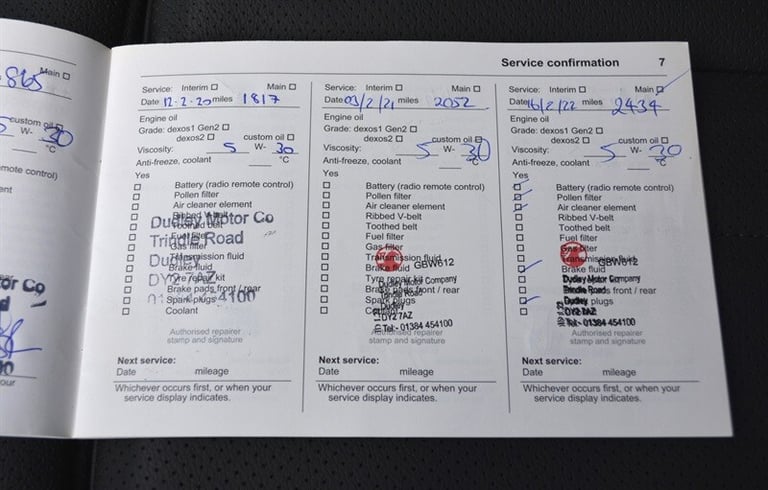 Service confirmation 7
865
Main
custom oil
W- 30
°C
mote control)
ent
or Co
our
Service: Interim Main
Date 12-2-20 miles 1817
Engine oil
Grade: dexos1 Gen2
dexos2 custom oil
Viscosity: 5 W- 30
Anti-freeze, coolant °C
Yes
Battery (radio remote control)
Pollen filter
Air cleaner element
Ribbed V-belt
Toothed belt
Fuel filter
Gas filter
Transmission fluid
Brake fluid
Tyre repair kit
Brake pads front / rear
Spark plugs
Coolant
Dudley Motor Co
Trindle Road
Dudley
DY2 7AZ
4100
Authorised repairer
stamp and signature
Next service:
Date mileage
Whichever occurs first, or when your
service display indicates.
Service: Interim Main
Date 03/2/21 miles 2052
Engine oil
Grade: dexos1 Gen2
dexos2 custom oil
Viscosity: 5 W- 30
Anti-freeze, coolant °C
Yes
Battery (radio remote control)
Pollen filter
Air cleaner element
Ribbed V-belt
Toothed belt
Fuel filter
Gas filter
Transmission fluid
Brake fluid
Tyre repair kit
Brake pads front / rear
Spark plugs
Coolant
GBW612
Dudley Motor Company
Trindle Road
Dudley
DY2 7AZ
Tel:- 01384 454100
Authorised repairer
stamp and signature
Next service:
Date mileage
Whichever occurs first, or when your
service display indicates.
Service: Interim Main
Date 16/2/22 miles 2434
Engine oil
Grade: dexos1 Gen2
dexos2 custom oil
Viscosity: 5 W- 30
Anti-freeze, coolant °C
Yes
Battery (radio remote control)
Pollen filter
Air cleaner element
Ribbed V-belt
Toothed belt
Fuel filter
Gas filter
Transmission fluid
Brake fluid
front / rear
plugs
GBW612
Dudley Motor Company
Trindle Road
Dudley
DY2 7AZ
Tel:- 01384 454100
Authorised repairer
stamp and signature
Next service:
Date mileage
Whichever occurs first, or when your
service display indicates.